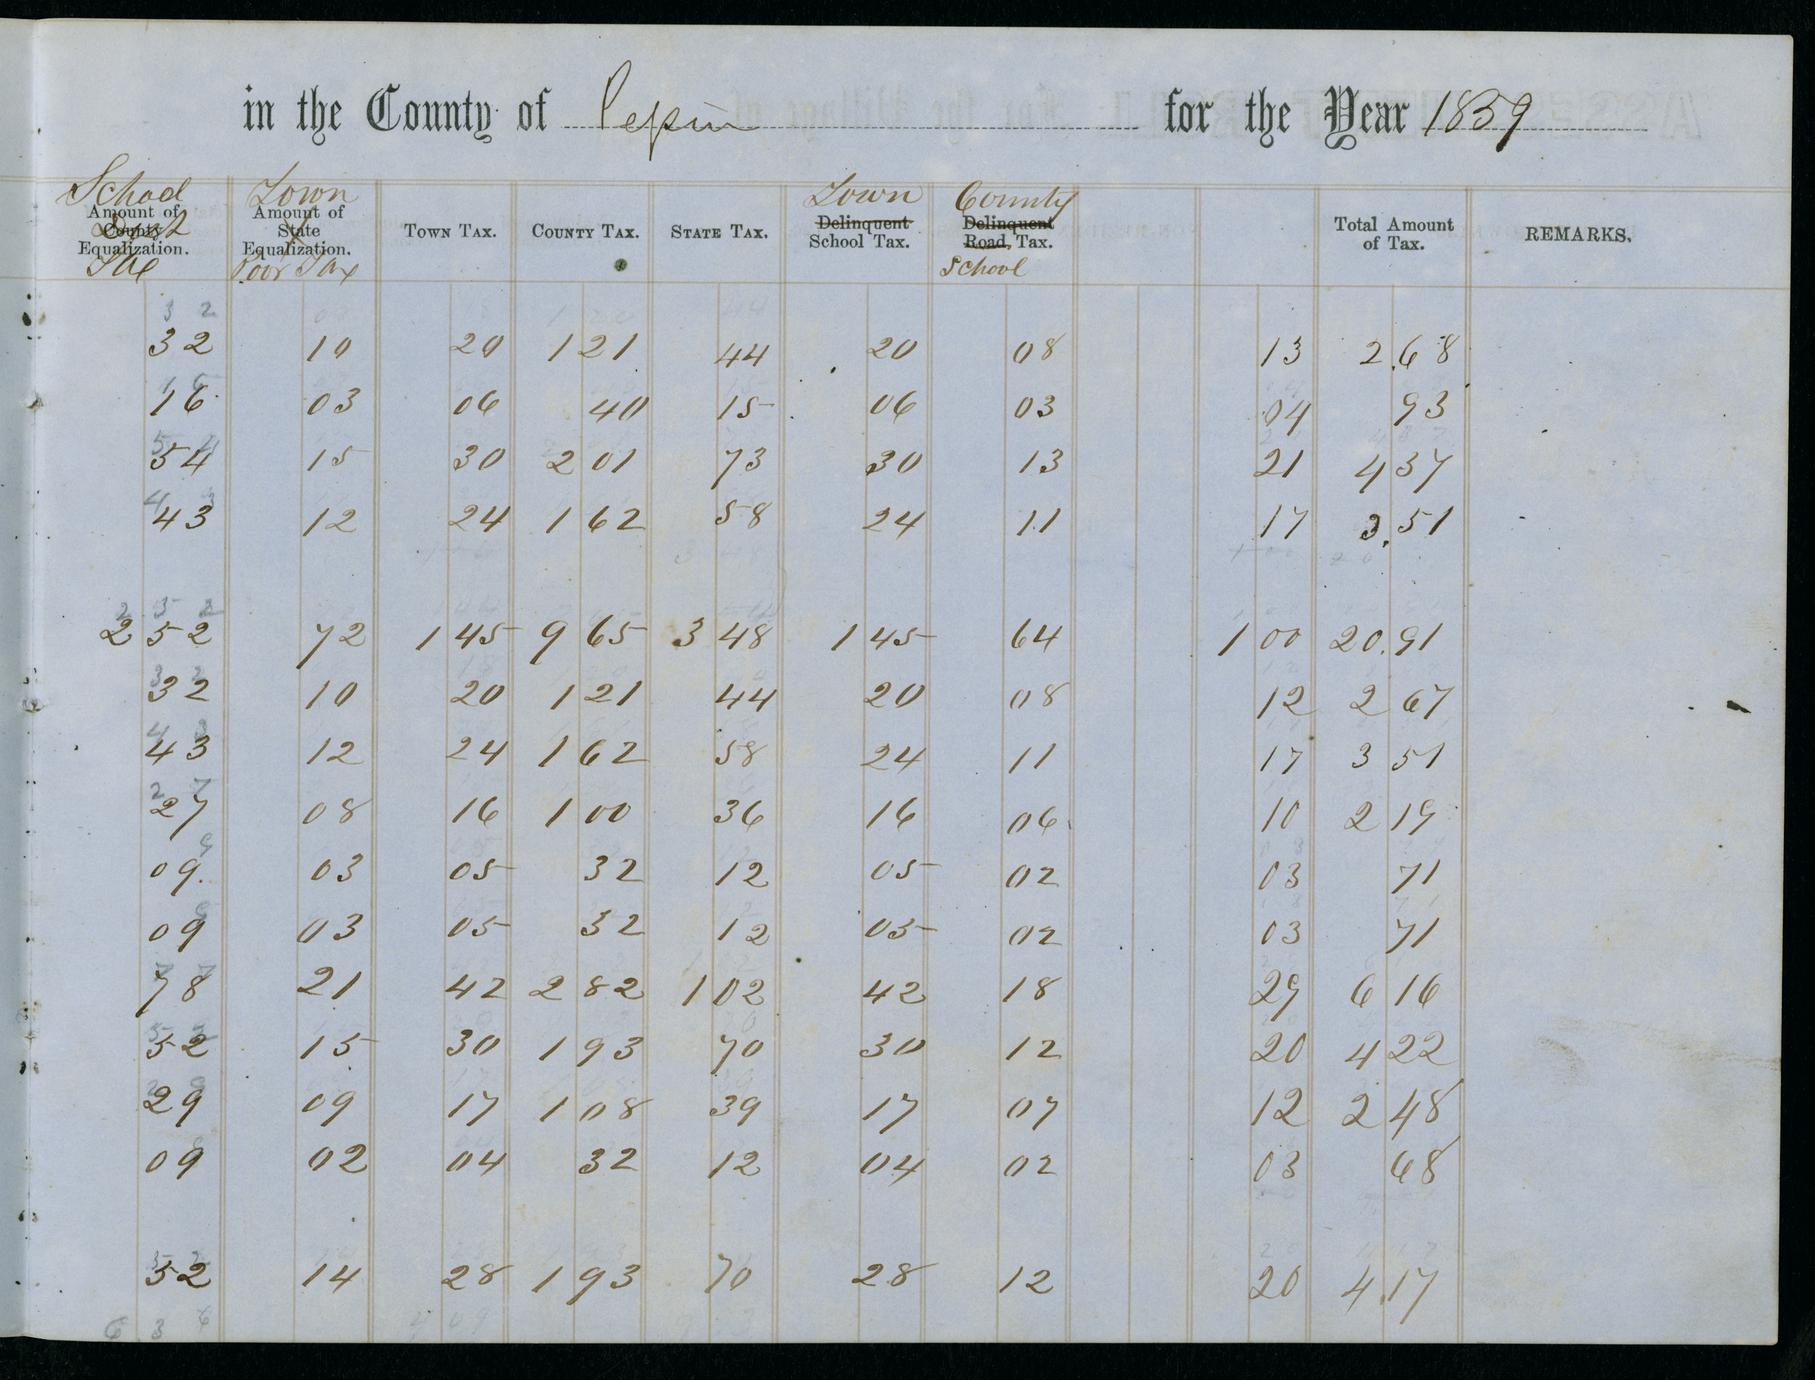 in the County of Pepin for the Year 1859
School Town Town County
Amount of County Equalization. Amount of State Equalization. TOWN TAX. COUNTY TAX. STATE TAX. Delinquent School Tax. Delinquent Road, Tax. Total Amount of Tax. REMARKS.
Tax Poor Tax School
32 10 20 1 21 44 20 08 13 2.68
16 03 06 40 15 06 03 04 93
54 15 30 2 01 73 30 13 21 4 37
43 12 24 1 62 58 24 11 17 3.51
2 52 72 1 45 9 65 3 48 1 45 64 1 00 20.91
32 10 20 1 21 44 20 08 12 2 67
43 12 24 1 62 58 24 11 17 3 51
27 08 16 1 00 36 16 06 10 2 19
09 03 05 32 12 05 02 03 71
09 03 05 32 12 05 02 03 71
78 21 42 2 82 1 02 42 18 29 6 16
52 15 30 1 93 70 30 12 20 4 22
29 09 17 1 08 39 17 07 12 2 48
09 02 04 32 12 04 02 03 68
52 14 28 1 93 70 28 12 20 4.17